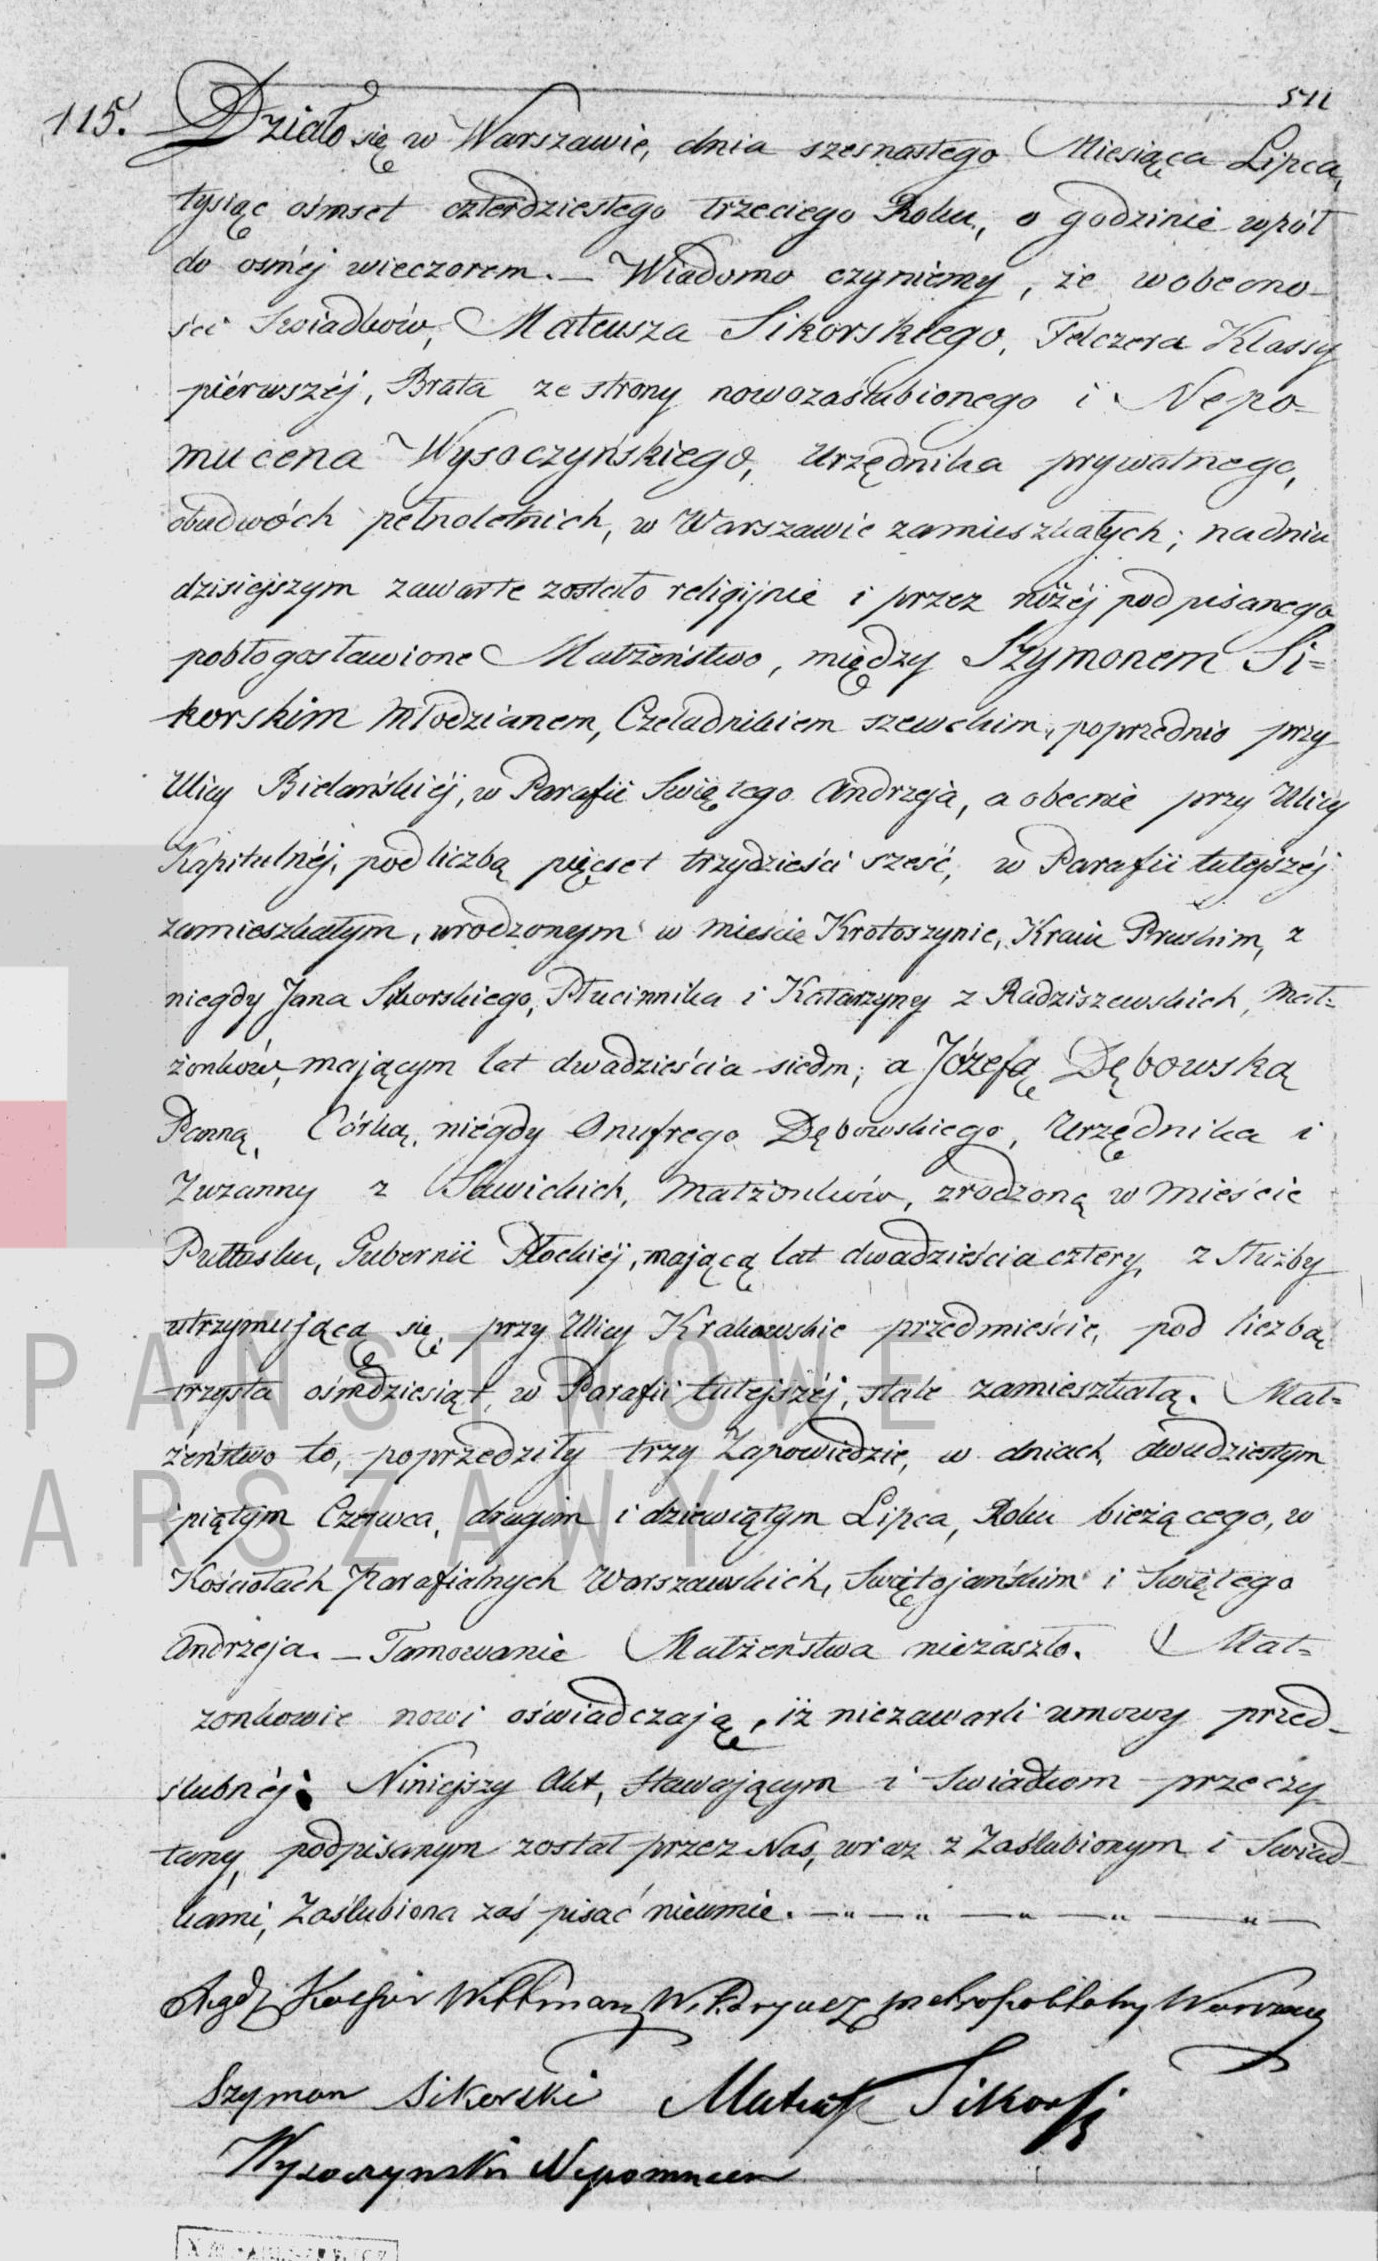 511
115. Działo się w Warszawie, dnia szesnastego Miesiąca Lipca,
tysiąc ośmset czterdziestego trzeciego Roku, o godzinie wpół
do osméj wieczorem. — Wiadomo czyniemy, że wobecno-
ści Swiadków, Mateusza Sikorskiego, Felczera Klassy
piérwszéj, Brata ze strony nowozaślubionego i Nepo-
mucena Wysoczyńskiego, Urzędnika prywatnego,
obudwóch pełnoletnich, w Warszawie zamieszkałych; nadniu
dzisiejszym zawarte zostało religijnie i przez niżéj podpisanego
pobłogosławione Małżeństwo, między Szymonem Si-
korskim Młodzianem, Czeladnikiem szewckim, poprzednio przy
Ulicy Bielańskiéj, w Parafii Swiętego Andrzeja, a obecnie przy Ulicy
Kapitulnéj, pod liczbą pięcset trzydzieści sześć, w Parafii tutejszéj
zamieszkałym, urodzonym w mieście Krotoszynie, Kraiu Pruskim, z
niegdy Jana Sikorskiego, Płucinnika i Katarzyny z Radziszewskich, Mał-
żonków, mającym lat dwadzieścia siedm; a Józefą Dębowską
Panną, Córką, niegdy Onufrego Dębowskiego, Urzędnika i
Zuzanny z Sawickich, Małżonków, zrodzoną w Mieście
Pułtusku, Gubernii Płockiéj, mającą lat dwadzieścia cztery, z Służby
utrzymującą się, przy Ulicy Krakowskie przedmieście, pod liczbą
trzysta ośmdziesiąt, w Parafii tutejszéj, stale zamieszkałą. Mał-
żeństwo to, poprzedziły trzy Zapowiedzie, w dniach, dwudziestym
piątym Czerwca, drugim i dziewiątym Lipca, Roku bieżącego, w
Kościołach Parafialnych Warszawskich, Swiętojańskim i Swiętego
Andrzeja. — Tamowanie Małżeństwa niezaszło. Mał-
żonkowie nowi oświadczają, iż niezawarli umowy przed-
ślubnéj. Niniejszy Akt, Stawającym i Swiadkom przeczy
tany, podpisanym został przez Nas, wraz z Zaślubionym i Swiad-
kami, Zaślubiona zaś pisać nieumie.
Wikaryusz
Szymon Sikorski Mateusz Sikorski
Wysoczynski Nepomucen
PAŃSTWOWE
ARSZAWY